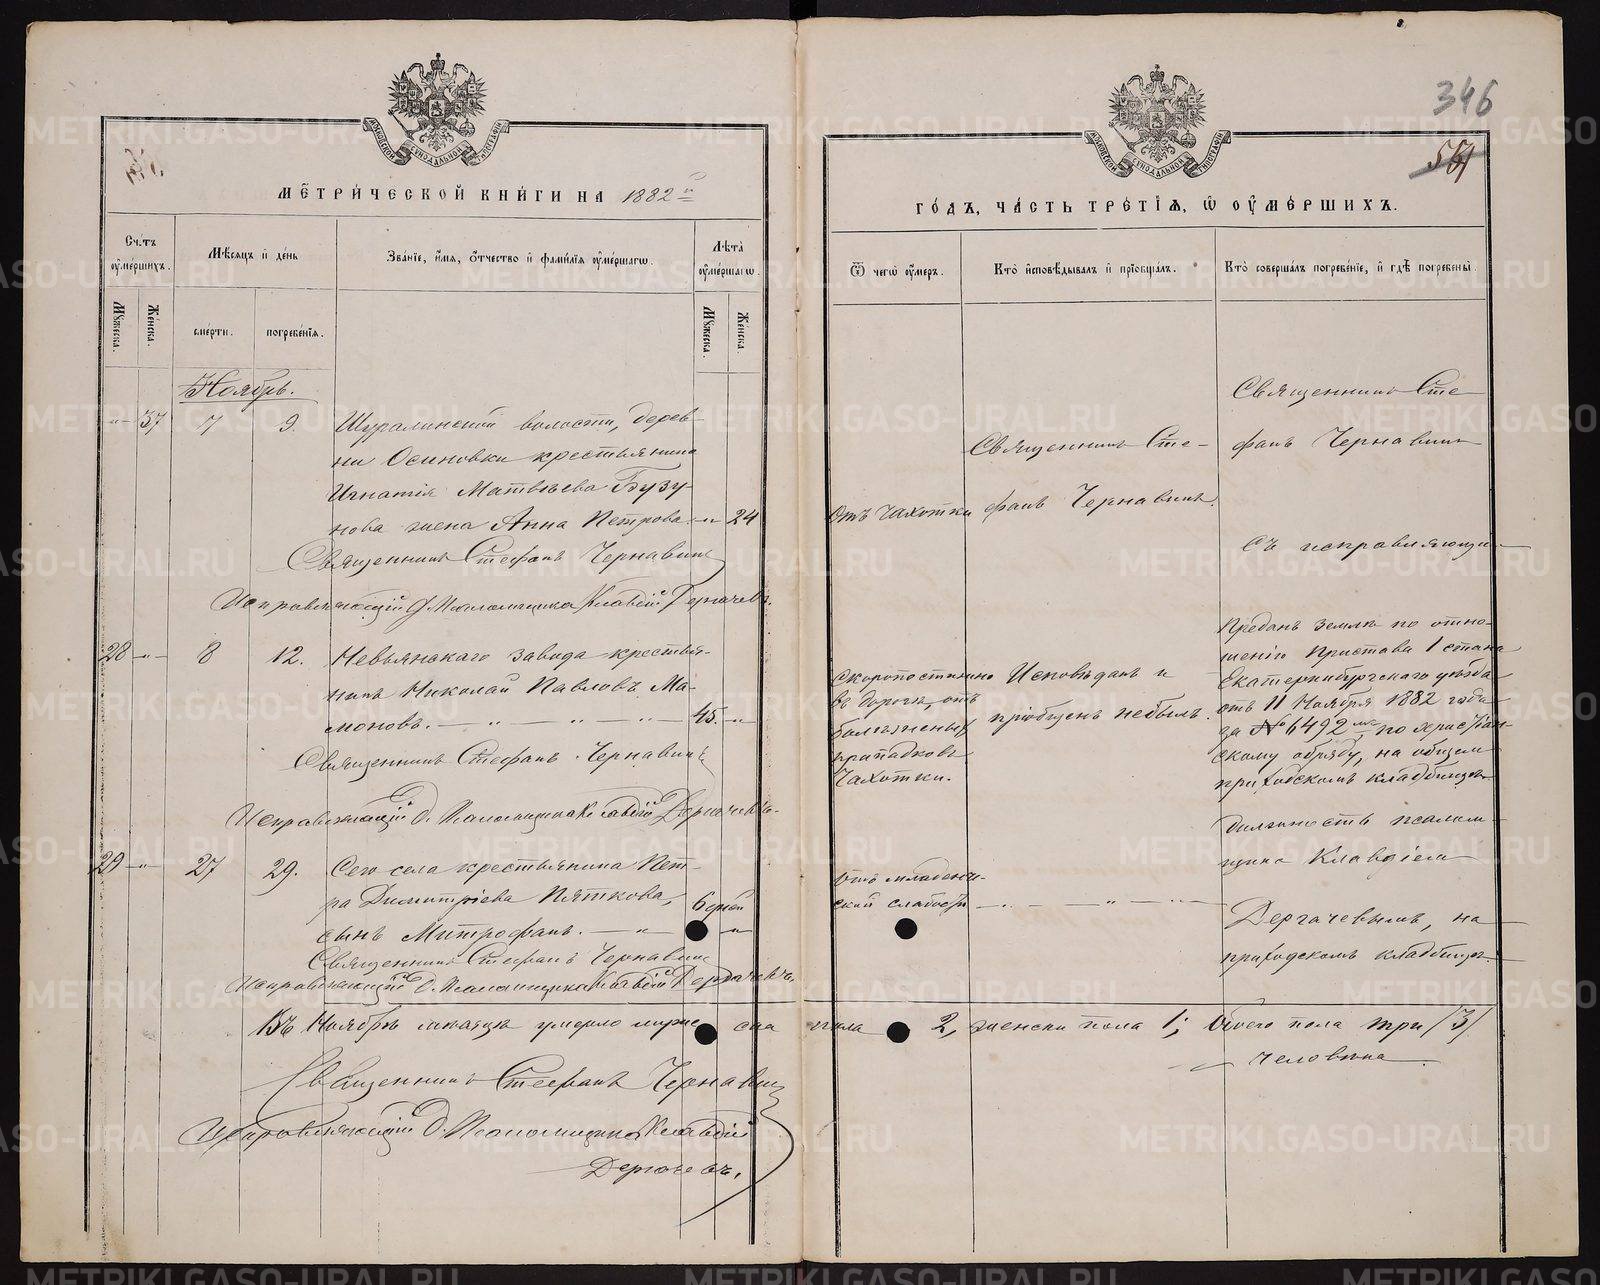 346
551
МЕТРИЧЕСКОЙ КНИГИ НА 1882 й
ГОДЪ, ЧАСТЬ ТРЕТІЯ, Ѡ ОУМЕРШИХЪ.
Счетъ оумершихъ.
Мѣсяцъ и день
Званіе, имя, отчество и фамилія оумершагѡ.
Лѣта оумершагѡ.
Мужеска.
Женска.
смерти.
погребенія.
Мужеска.
Женска.
Ѿ чегѡ оумеръ.
Кто исповѣдывалъ и пріобщалъ.
Кто совершалъ погребеніе, и гдѣ погребены.
Ноябрь.
37 7 9. Шуралинской волости, дерев-
ни Осиновки крестьянина
Игнатія Матвѣева Бузу-
нова жена Анна Петрова 24
Священникъ Стефанъ Чернавинъ
Исправляющій д. Псаломщика Клавдій Дергачевъ.
Отъ чахотки
Священникъ Сте-
фанъ Чернавинъ.
Священникъ Сте-
фанъ Чернавинъ
съ исправляющи-
28 8 12. Невьянскаго завода крестья-
нинъ Николай Павловъ Ма-
моновъ. 45.
Священникъ Стефанъ Чернавинъ
Исправляющій д. Псаломщика Клавдій Дергачевъ.
Скоропостижно
въ дорогѣ, отъ
болѣзненныхъ
припадковъ
чахотки.
Исповѣданъ и
пріобщенъ небылъ.
Преданъ землѣ по отно-
шенію Пристава 1 стана
Екатеринбургскаго уѣзда
отъ 11 Ноября 1882 года
за № 6492 мъ, по христіан-
скому обряду, на общем
приходскомъ кладбищѣ.
должность псалом-
щика Клавдіем
Дергачевымъ, на
приходскомъ кладбищѣ.
29 27 29. Сего села крестьянина Пет-
ра Димитріева Пяткова,
сынъ Митрофанъ. 6 дней
Священникъ Стефанъ Чернавинъ
Исправляющій д. Псаломщика Клавдій Дергачевъ.
Отъ младенче-
ской слабости
Въ Ноябрѣ мѣсяцѣ умерло мужеска пола 2, женска пола 1; Обоего пола три (3)
человѣка
Священникъ Стефанъ Чернавинъ
Исправляющій д. Псаломщика Клавдій
Дергачевъ.
METRIKI.GASO-URAL.RU